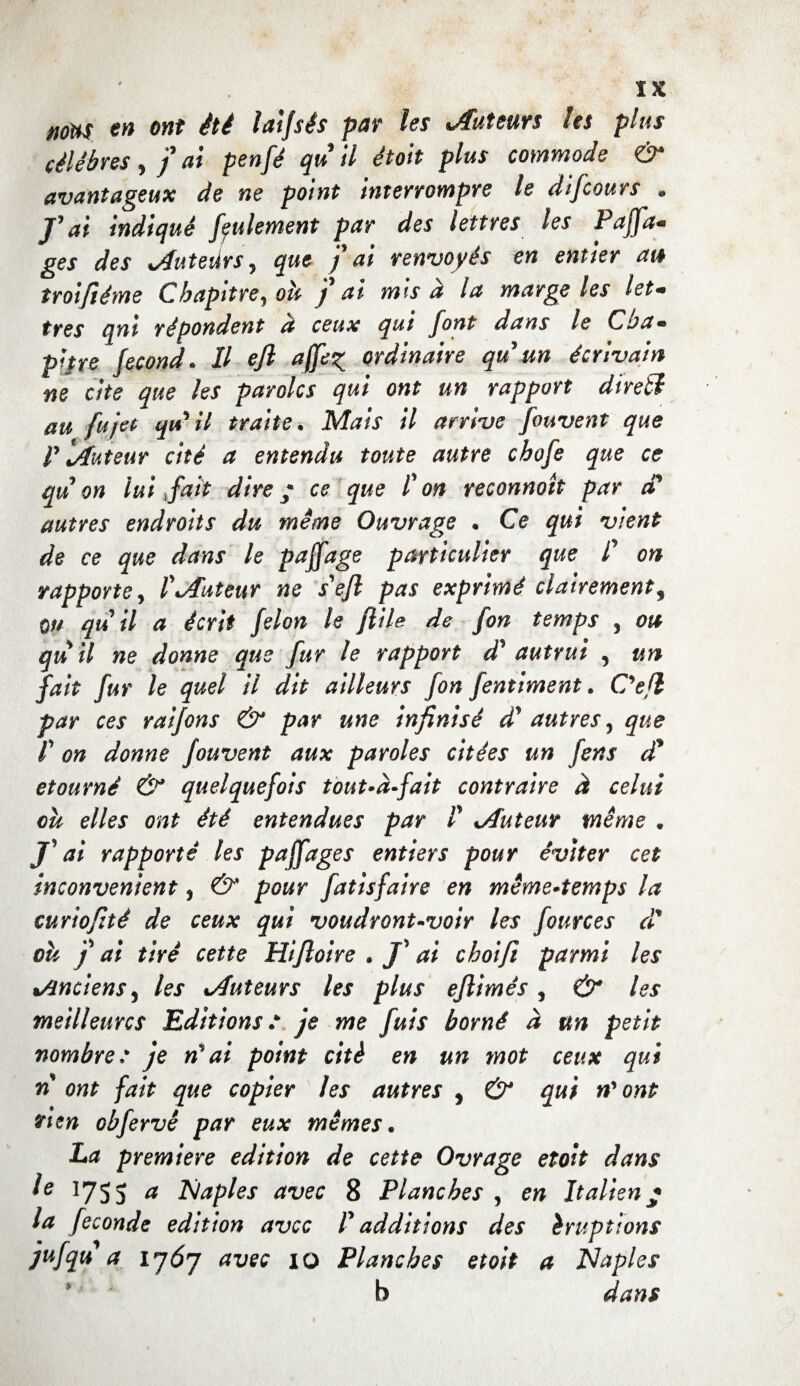 IX
nous en ont été laiſsés par les Auteurs les plus
célébres, j'ai penſé qu'il étoit plus commode &
avantageux de ne point interrompre le diſcours .
J'ai indiqué ſeulement par des lettres les Paſſa-
ges des Auteurs, que j'ai renvoyés en entier au
troiſiéme Chapitre, où j'ai mis à la marge les let-
tres qni répondent à ceux qui ſont dans le Cha-
pitre ſecond. Il eſt aſſez ordinaire qu'un écrivain
ne cite que les paroles qui ont un rapport direct
au ſujet qu'il traite. Mais il arrive ſouvent que
l'Auteur cité a entendu toute autre choſe que ce
qu'on lui fait dire ; ce que l'on reconnoît par d'
autres endroits du même Ouvrage . Ce qui vient
de ce que dans le paſſage particulier que l' on
rapporte, l'Auteur ne s'eſt pas exprimé clairement,
ou qu'il a écrit ſelon le ſtile de ſon temps , ou
qu'il ne donne que ſur le rapport d' autrui , un
fait ſur le quel il dit ailleurs ſon ſentiment. C'eſt
par ces raiſons & par une infinisé d' autres, que
l' on donne ſouvent aux paroles citées un ſens d'
etourné & quelquefois tout-à-fait contraire à celui
où elles ont été entendues par l' Auteur même .
J'ai rapporté les paſſages entiers pour éviter cet
inconvenient, & pour ſatisfaire en même-temps la
curioſité de ceux qui voudront-voir les ſources d'
où j'ai tiré cette Hiſtoire . J'ai choiſi parmi les
Anciens, les Auteurs les plus eſtimés , & les
meilleures Editions : je me ſuis borné à un petit
nombre : je n'ai point citè en un mot ceux qui
n'ont fait que copier les autres , & qui n'ont
rien obſervé par eux mêmes.
La premiere edition de cette Ovrage etoit dans
le 1755 a Naples avec 8 Planches , en Italien ;
la ſeconde edition avec l'additions des èruptions
juſqu'a 1767 avec 10 Planches etoit a Naples
b dans